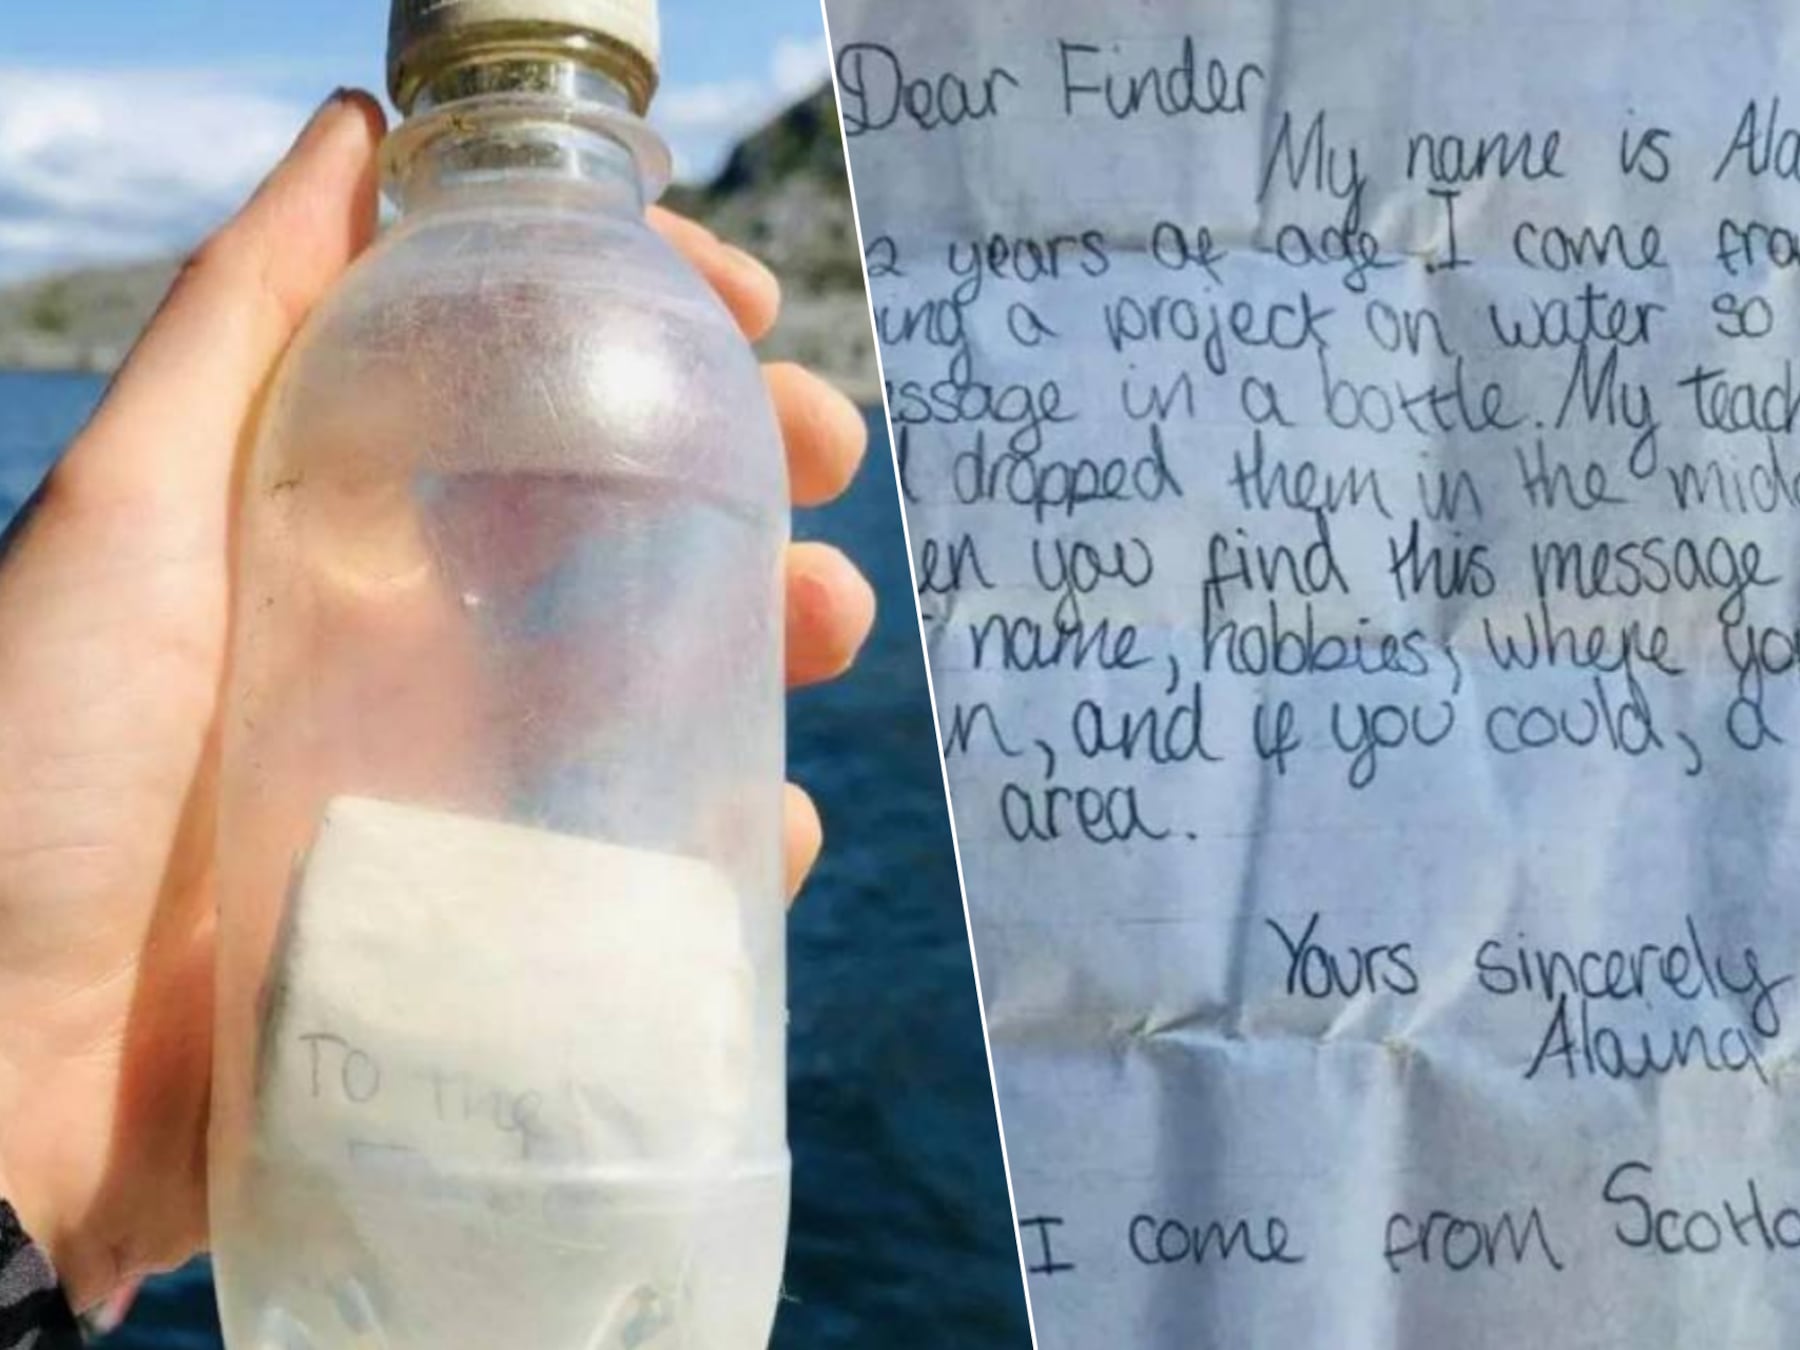 TO The
Dear Finder
My name is Ala
2 years of age. I come fro
ing a project on water so
ssage in a bottle. My teach
d dropped them in the midd
en you find this message
name, hobbies, where you
n, and if you could, a
area.
Yours sincerely
Alaina
I come from Scotla